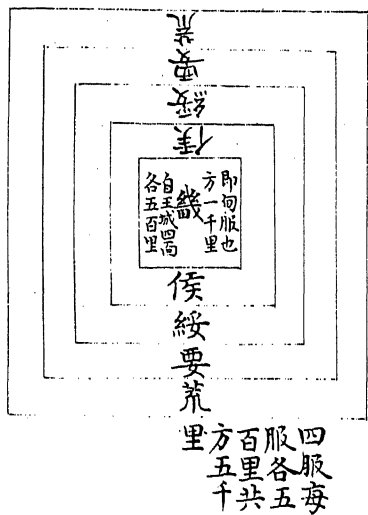 荒
要
綏
侯
即甸服也
方一千里
畿
自王城四面
各五百里
侯
綏
要
荒
四服每
服各五
百里共
方五千
里